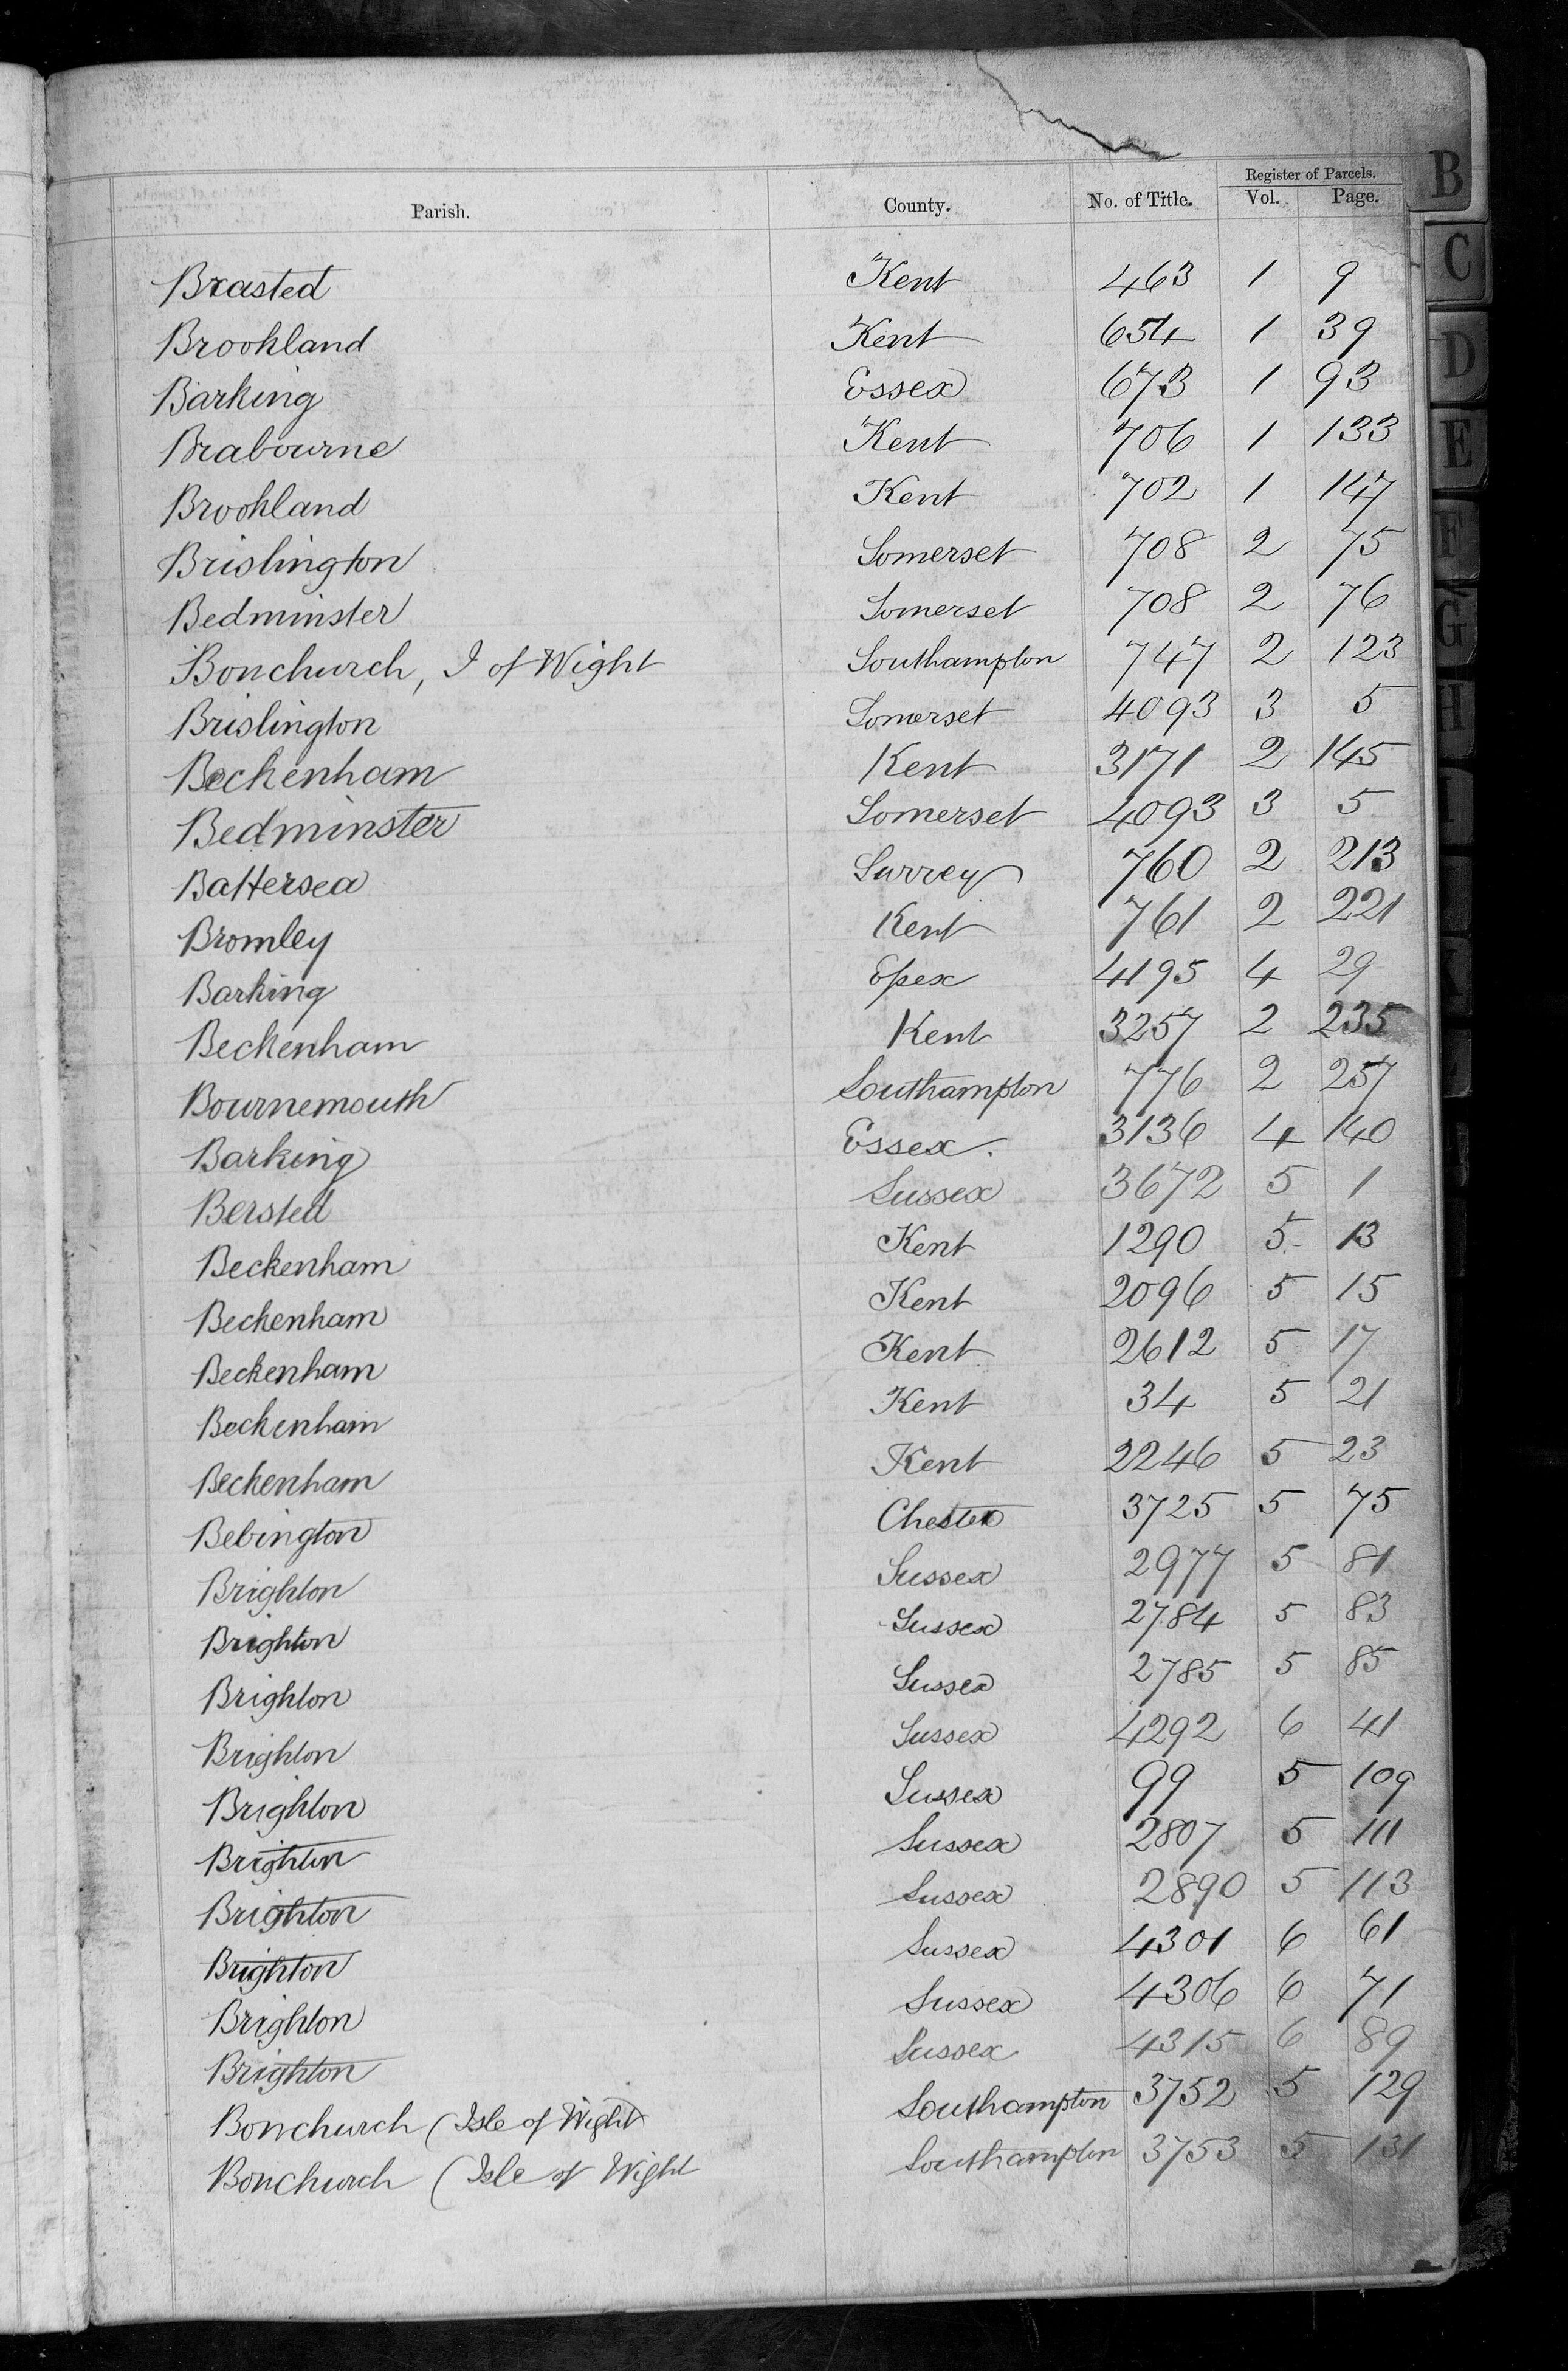 Register of Parcels.
Parish. County. No. of Title. Vol. Page.
Brasted Kent 463 1 9
Brookland Kent 654 1 39
Barking Essex 673 1 93
Brabourne Kent 706 1 133
Brookland Kent 702 1 147
Brislington Somerset 708 2 75
Bedminster Somerset 708 2 76
Bonchurch, I of Wight Southampton 747 2 123
Brislington Somerset 4093 3 5
Beckenham Kent 3171 2 145
Bedminster Somerset 4093 3 5
Battersea Surrey 760 2 213
Bromley Kent 761 2 221
Barking Essex 4195 4 29
Beckenham Kent 3257 2 235
Bournemouth Southampton 776 2 257
Barking Essex. 3136 4 140
Bersted Sussex 3672 5 1
Beckenham Kent 1290 5 13
Beckenham Kent 2096 5 15
Beckenham Kent 2612 5 17
Beckenham Kent 34 5 21
Beckenham Kent 2246 5 23
Bebington Chester 3725 5 75
Brighton Sussex 2977 5 81
Brighton Sussex 2784 5 83
Brighton Sussex 2785 5 85
Brighton Sussex 4292 6 41
Brighton Sussex 99 5 109
Brighton Sussex 2807 5 111
Brighton Sussex 2890 5 113
Brighton Sussex 4301 6 61
Brighton Sussex 4306 6 71
Brighton Sussex 4315 6 89
Bonchurch (Isle of Wight Southampton 3752 5 129
Bonchurch (Isle of Wight Southampton 3753 5 131
B
C
D
E
F
G
H
I
K